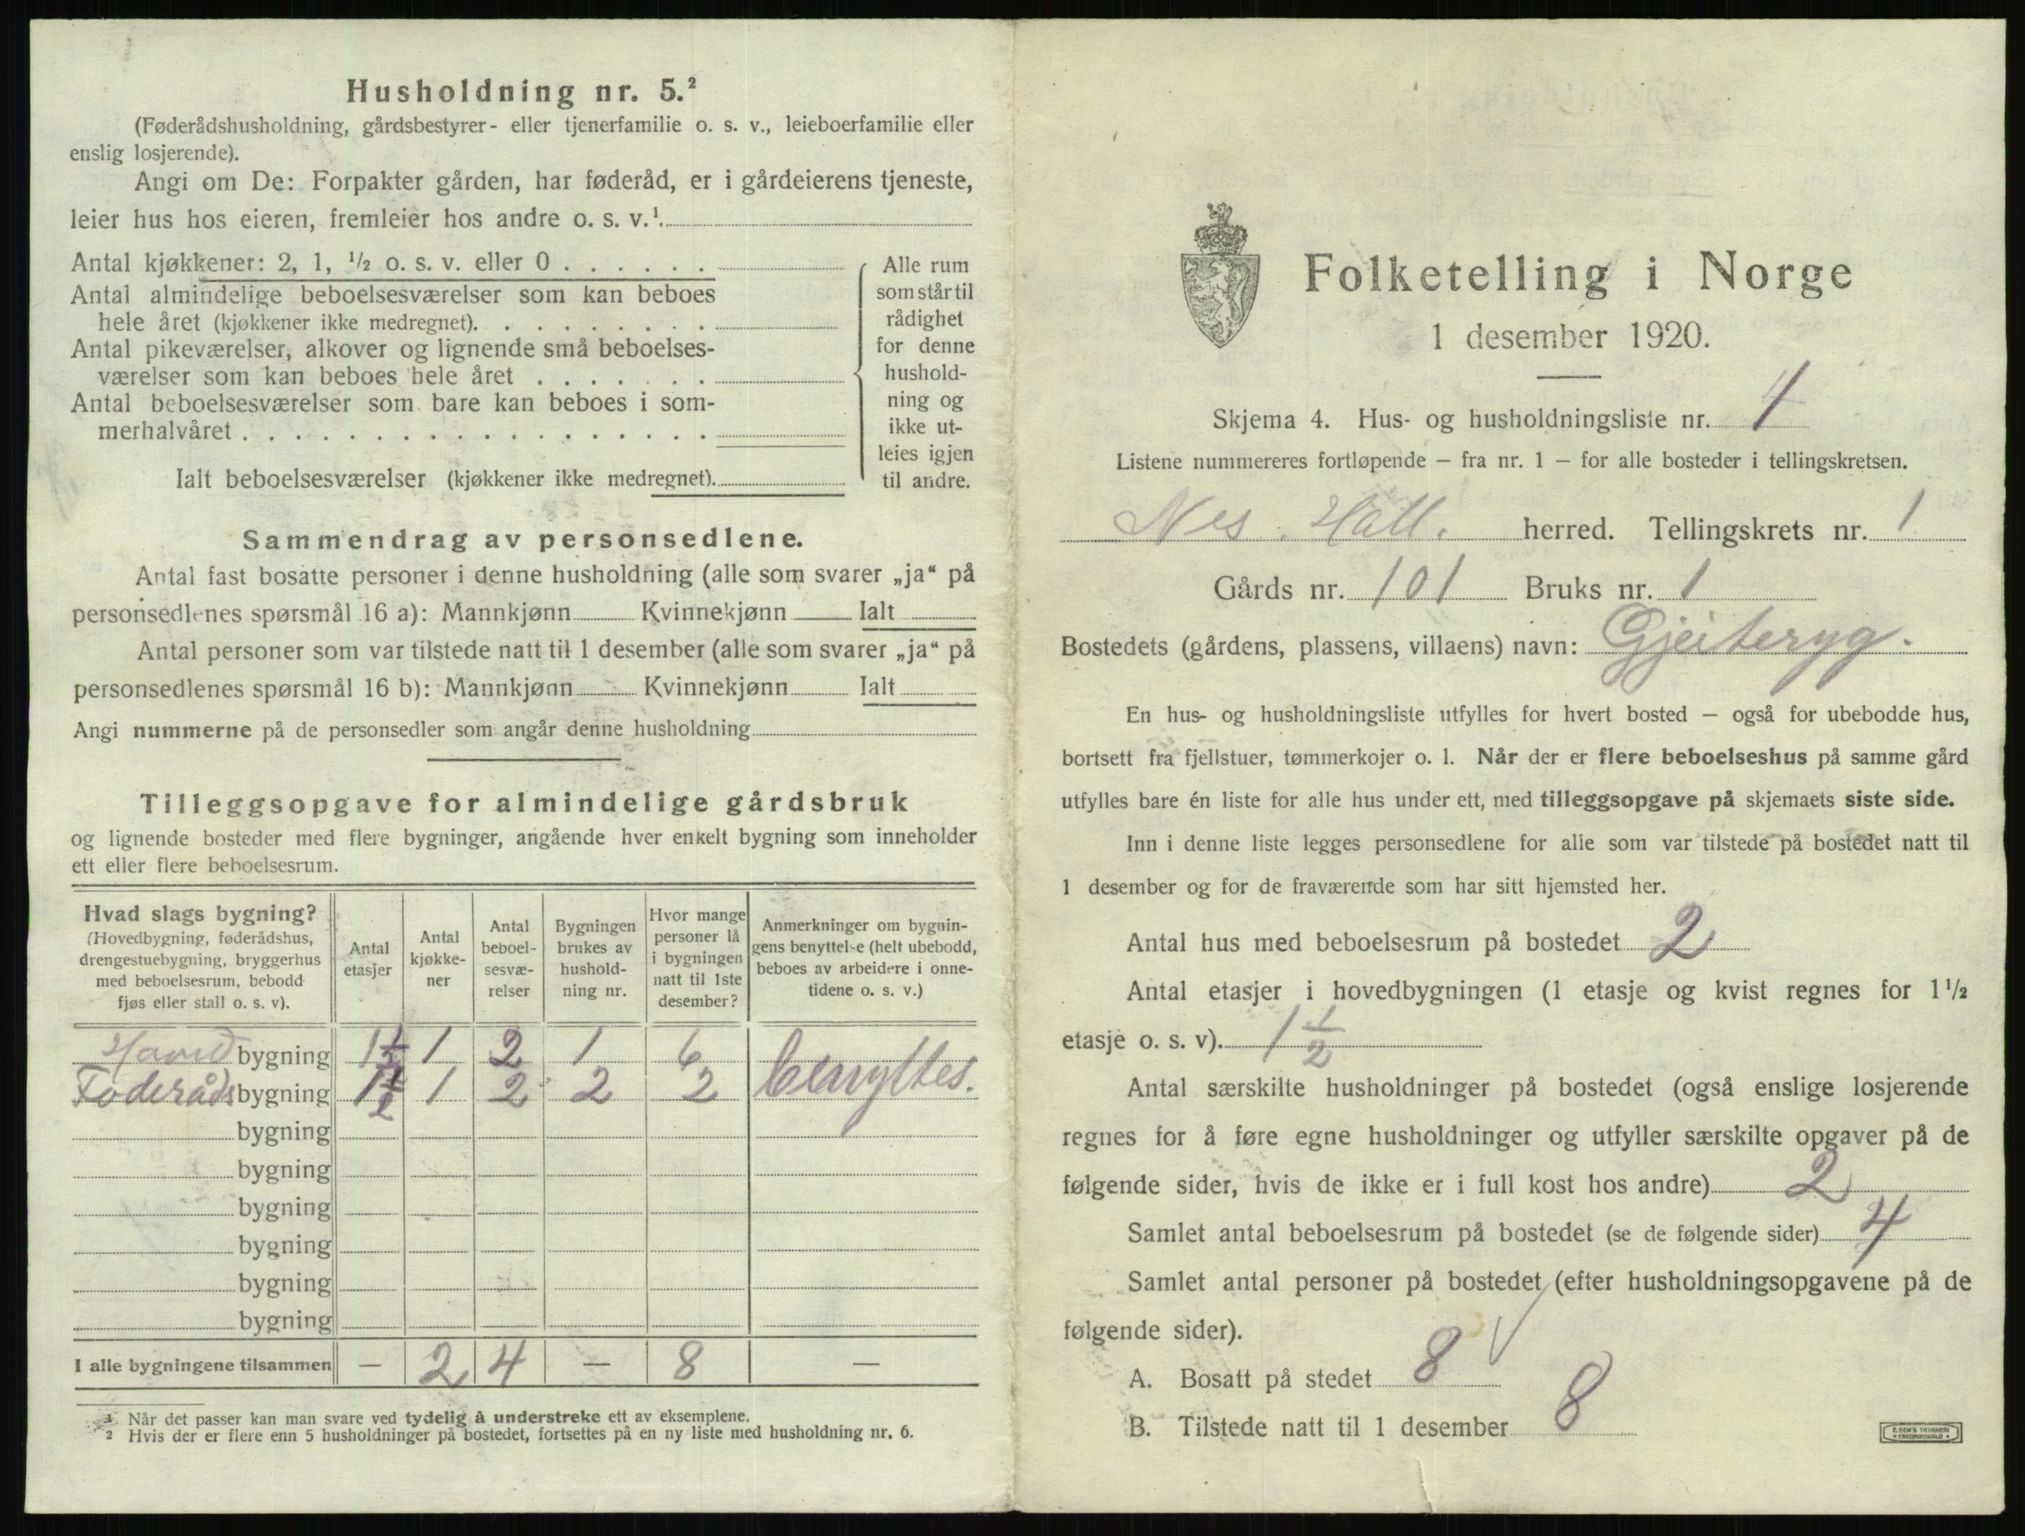 Husholdning nr. 5.²
(Føderådshusholdning, gårdsbestyrer- eller tjenerfamilie o. s. v., leieboerfamilie eller
enslig losjerende).
Angi om De: Forpakter gården, har føderåd, er i gårdeierens tjeneste,
leier hus hos eieren, fremleier hos andre o. s. v.¹
Antal kjøkkener: 2, 1, ½ o. s. v. eller 0 . . . . . .
Antal almindelige beboelsesværelser som kan beboes
hele året (kjøkkener ikke medregnet). . . . . . . . .
Antal pikeværelser, alkover og lignende små beboelses-
værelser som kan beboes hele året . . . . . . .
Antal beboelsesværelser som bare kan beboes i som-
merhalvåret . . . . . . . . . . . . . . . . . .
Ialt beboelsesværelser (kjøkkener ikke medregnet).
Alle rum
som står til
rådighet
for denne
hushold-
ning og
ikke ut-
leies igjen
til andre.
Sammendrag av personsedlene.
Antal fast bosatte personer i denne husholdning (alle som svarer „ja“ på
personsedlenes spørsmål 16 a): Mannkjønn Kvinnekjønn Ialt
Antal personer som var tilstede natt til 1 desember (alle som svarer „ja“ på
personsedlenes spørsmål 16 b): Mannkjønn Kvinnekjønn Ialt
Angi nummerne på de personsedler som angår denne husholdning
Tilleggsopgave for almindelige gårdsbruk
og lignende bosteder med flere bygninger, angående hver enkelt bygning som inneholder
ett eller flere beboelsesrum.
Hvad slags bygning?
(Hovedbygning, føderådshus,
drengestuebygning, bryggerhus
med beboelsesrum, bebodd
fjøs eller stall o. s. v).
Antal
etasjer
Antal
kjøkke-
ner
Antal
beboel-
sesvæ-
relser
Bygningen
brukes av
hushold-
ning nr.
Hvor mange
personer lå
i bygningen
natt til 1ste
desember?
Anmerkninger om bygnin-
gens benyttelse (helt ubebodd,
beboes av arbeidere i onne-
tidene o. s. v.)
Hoved bygning 1½ 1 2 1 6
Føderåds bygning 1½ 1 2 2 2 benyttes.
bygning
bygning
bygning
bygning
bygning
bygning
I alle bygningene tilsammen — 2 4 — 8 —
¹ Når det passer kan man svare ved tydelig å understreke ett av eksemplene.
² Hvis der er flere enn 5 husholdninger på bostedet, fortsettes på en ny liste med husholdning nr. 6.
Folketelling i Norge
1 desember 1920.
Skjema 4. Hus- og husholdningsliste nr. 1
Listene nummereres fortløpende – fra nr. 1 – for alle bosteder i tellingskretsen.
Nes. Hall. herred. Tellingskrets nr. 1
Gårds nr. 101 Bruks nr. 1
Bostedets (gårdens, plassens, villaens) navn: Gjeiteryg.
En hus- og husholdningsliste utfylles for hvert bosted – også for ubebodde hus,
bortsett fra fjellstuer, tømmerkojer o. l. Når der er flere beboelseshus på samme gård
utfylles bare én liste for alle hus under ett, med tilleggsopgave på skjemaets siste side.
Inn i denne liste legges personsedlene for alle som var tilstede på bostedet natt til
1 desember og for de fraværende som har sitt hjemsted her.
Antal hus med beboelsesrum på bostedet 2
Antal etasjer i hovedbygningen (1 etasje og kvist regnes for 1½
etasje o. s. v). 1½
Antal særskilte husholdninger på bostedet (også enslige losjerende
regnes for å føre egne husholdninger og utfyller særskilte opgaver på de
følgende sider, hvis de ikke er i full kost hos andre) 2
Samlet antal beboelsesrum på bostedet (se de følgende sider) 4
Samlet antal personer på bostedet (efter husholdningsopgavene på de
følgende sider).
A. Bosatt på stedet 8
B. Tilstede natt til 1 desember 8